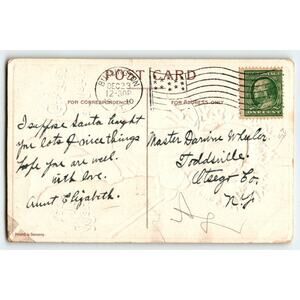 POST CARD
DEC 23
12-30P
10
FOR CORRESPONDENCE
FOR ADDRESS ONLY
I suppose Santa taught
you lots of nice things
hope you are well.
with love.
Aunt Elizabeth.
Master Darwine Wheeler.
Toddsville.
Otsego Co.
N.Y.
Printed in Germany.